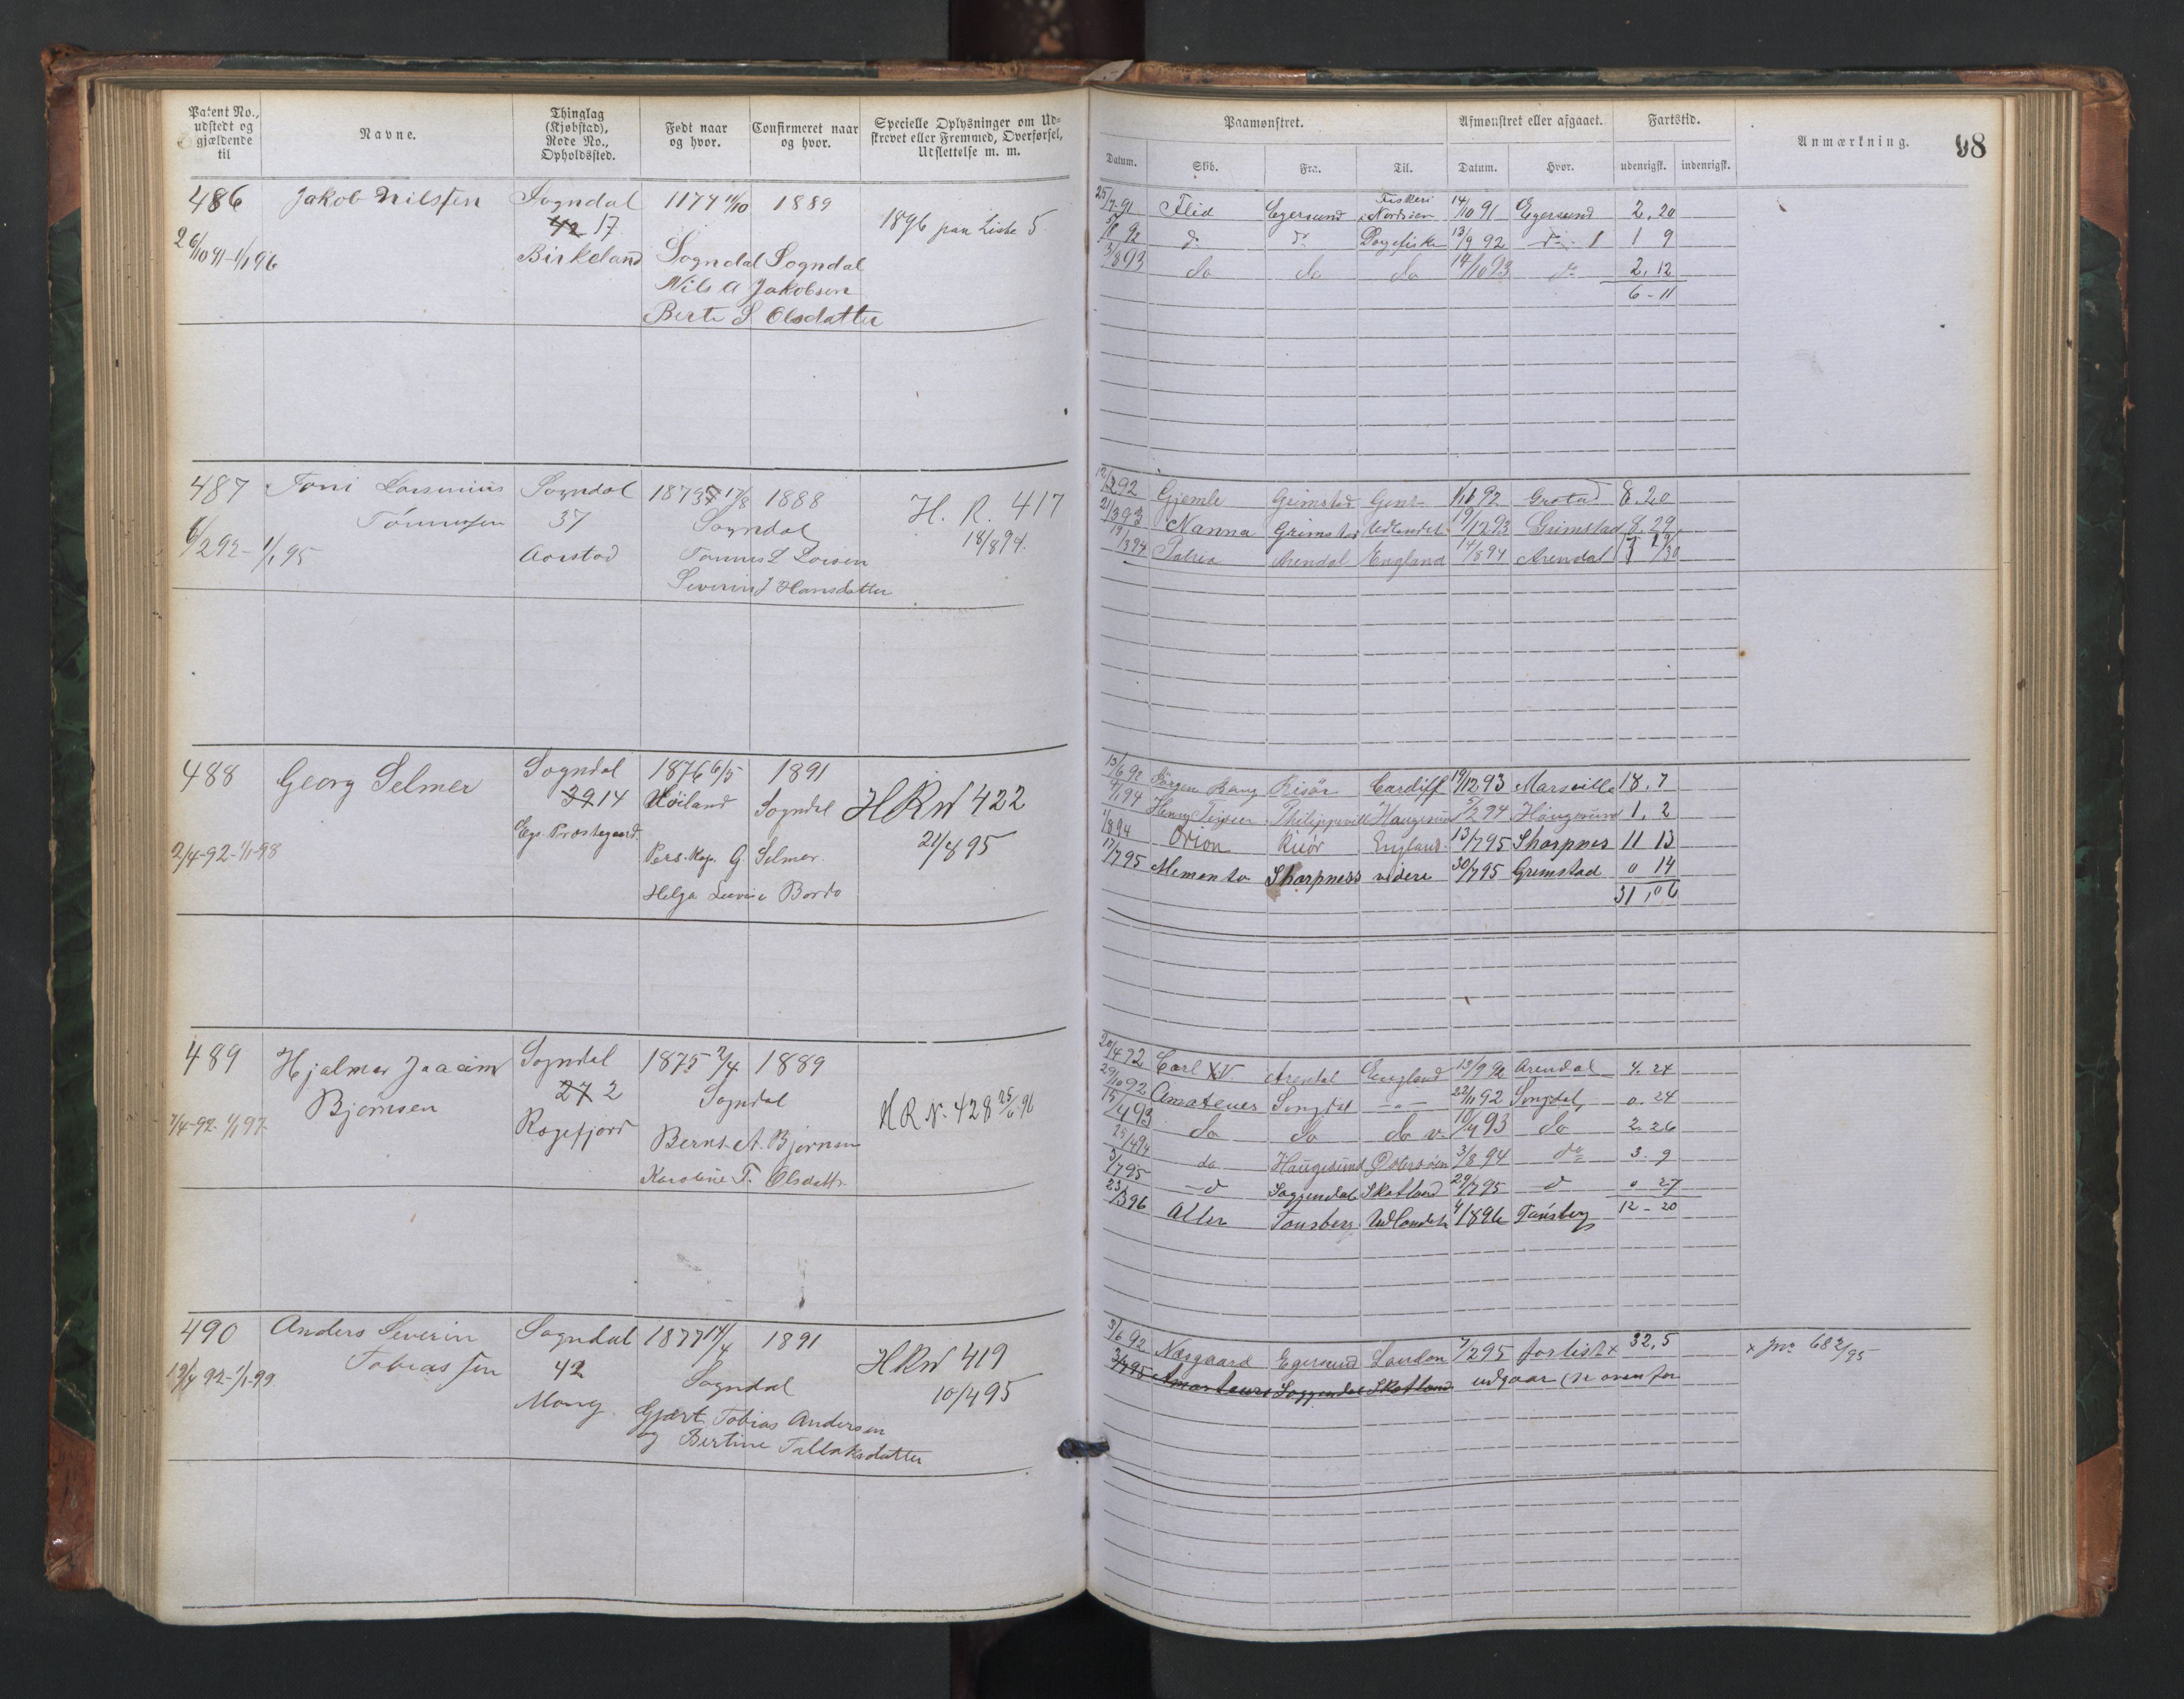 Patent No., udstedt og gjældende til
Navne.
Thinglag (Kjøbstad), Rode No., Opholdssted.
Født naar og hvor.
Confirmeret naar og hvor.
Specielle Oplysninger om Udskrevet eller Fremmed, Overførsel, Udslettelse m. m.
Paamønstret.
Afmønstret eller afgaaet.
Fartstid.
Anmærkning.
98
Datum.
Skib.
Fra.
Til.
Datum.
Hvor.
udenrigsk.
indenrigsk.
486 Jakob Nilssen Sogndal 1174 11/10 1889
42 17 1896 paa Liste 5
26/10 91-1/1 96 Birkeland Sogndal Sogndal
Nils A Jakobsen
Berte S Olsdatter
25/7 91 Flid Egersund Fiskeri i Nordsøen 14/10 91 Egersund 2.20
92 do do Dagfiske 13/9 92 do 1 9
3/8 93 do do do 14/10 93 do 2.12
6-11
487 Toni Lasenius Sogndal 1873 17/8 1888 H. R. 417
Tønnessen 37 Sogndal 18/8 94.
6/2 92-1/1 95 Aarstad Tønnes L Larsen
Severine J Hansdatter
12/2 92 Gjemle Grimstad Gent 1/11 92 8.20
21/3 93 Nanna Grimstad Udlandet 19/12 93 Grimstad 8.29
19/3 94 Patria Arendal England 14/8 94 Arendal
488 Georg Selmer Sogndal 1876 6/5 1891
39 14 Høiland Sogndal HRN 422
Egr. Præstegaard 21/8 95
2/4-92-1/1-98 Pers. Kap. G. Selmer
Helga Bordo
13/6 92 Jørgen Bang Risør Cardiff 19/12 93 Marseille 18.7
1/1 94 Henry Philippeville Haugesund 5/2 94 Haugesund 1.2
1/8 94 Orion Risør England 13/7 95 Sharpnes 11 13
17/7 95 Memento Sharpness videre 30/7 95 Grimstad 0 14
31,06
489 Hjalmar Joacim Sogndal 1875 2/4 1889
Bjørnsen 27 2 Sogndal H R N. 428 25/6 96
7/4-92-1/1 97 Rægefjord Bernt A. Bjørnsen
Karoline T. Olsdatt.
20/4 92 Carl XV. Arendal England 13/9 92 Arendal 4.24
29/10 92 Amateues Songdal -"- 22/11 92 Songdal 0.24
15/4 93 do do do v. 10/7 93 do 2.26
25/4 94 do Haugesund Østersøen 3/8 94 do 3.9
3/7 95 -d Soggendal Skotland 29/7 95 d 0 27
23/3 96 Atter Tønsberg Udlandet 4/8 96 Tønsberg 12-20
490 Anders Severin Sogndal 1877 14/4 1891
Tobiassen 42 Sogndal HRN 419
19/4 92-1/1-99 Mong 10/4 95
Gjert Tobias Andersen
og Bertine Tallaksdatter
3/6 92 Nærgaard Egersund London 7/2 95 forlist x 32.5 x Jno 682/95
3/7 95 Amarteurs Soggendal Skotland udgaar (se ovenfor